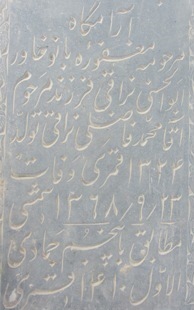 آرامگاه
مرحومه مغفوره بانو خاور
ابوالحسنی نراقی فرزند مرحوم
آقا محمد فاضلی نراقی تولد
۱۳۲۴ قمری وفات
۱۳۶۸/۹/۲۳ شمسی
مطابق پنجم جمادی
الاول ۱۴۱۰ قمری